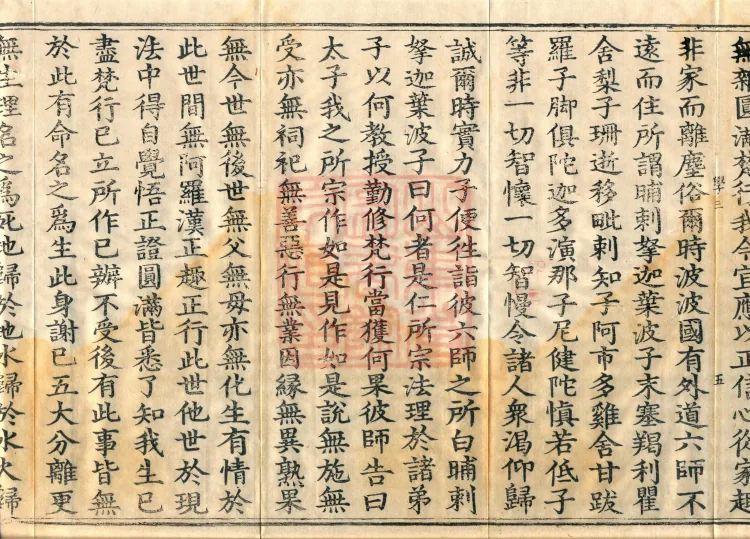 無雜圓滿梵行我今宜應以正信心從家趣
學三
五
非家而離塵俗爾時波波國有外道六師不
遠而住所謂晡剌拏迦葉波子末塞羯利瞿
舍梨子珊逝移毗剌知子阿市多雞舍甘跋
羅子脚俱陀迦多演那子尼健陀慎若低子
等非一切智懷一切智慢令諸人衆渴仰歸
誠爾時實力子便徃詣彼六師之所白晡剌
拏迦葉波子曰何者是仁所宗法理於諸弟
子以何教授勤修梵行當獲何果彼師告曰
太子我之所宗作如是見作如是說無施無
受亦無祠祀無善惡行無業因縁無異熟果
無今世無後世無父無母亦無化生有情於
此世間無阿羅漢正趣正行此世他世於現
法中得自覺悟正證圓滿皆悉了知我生已
盡梵行已立所作已辦不受後有此事皆無
於此有命名之爲生此身謝已五大分離更
無生理名之爲死地歸於地水歸於水火歸